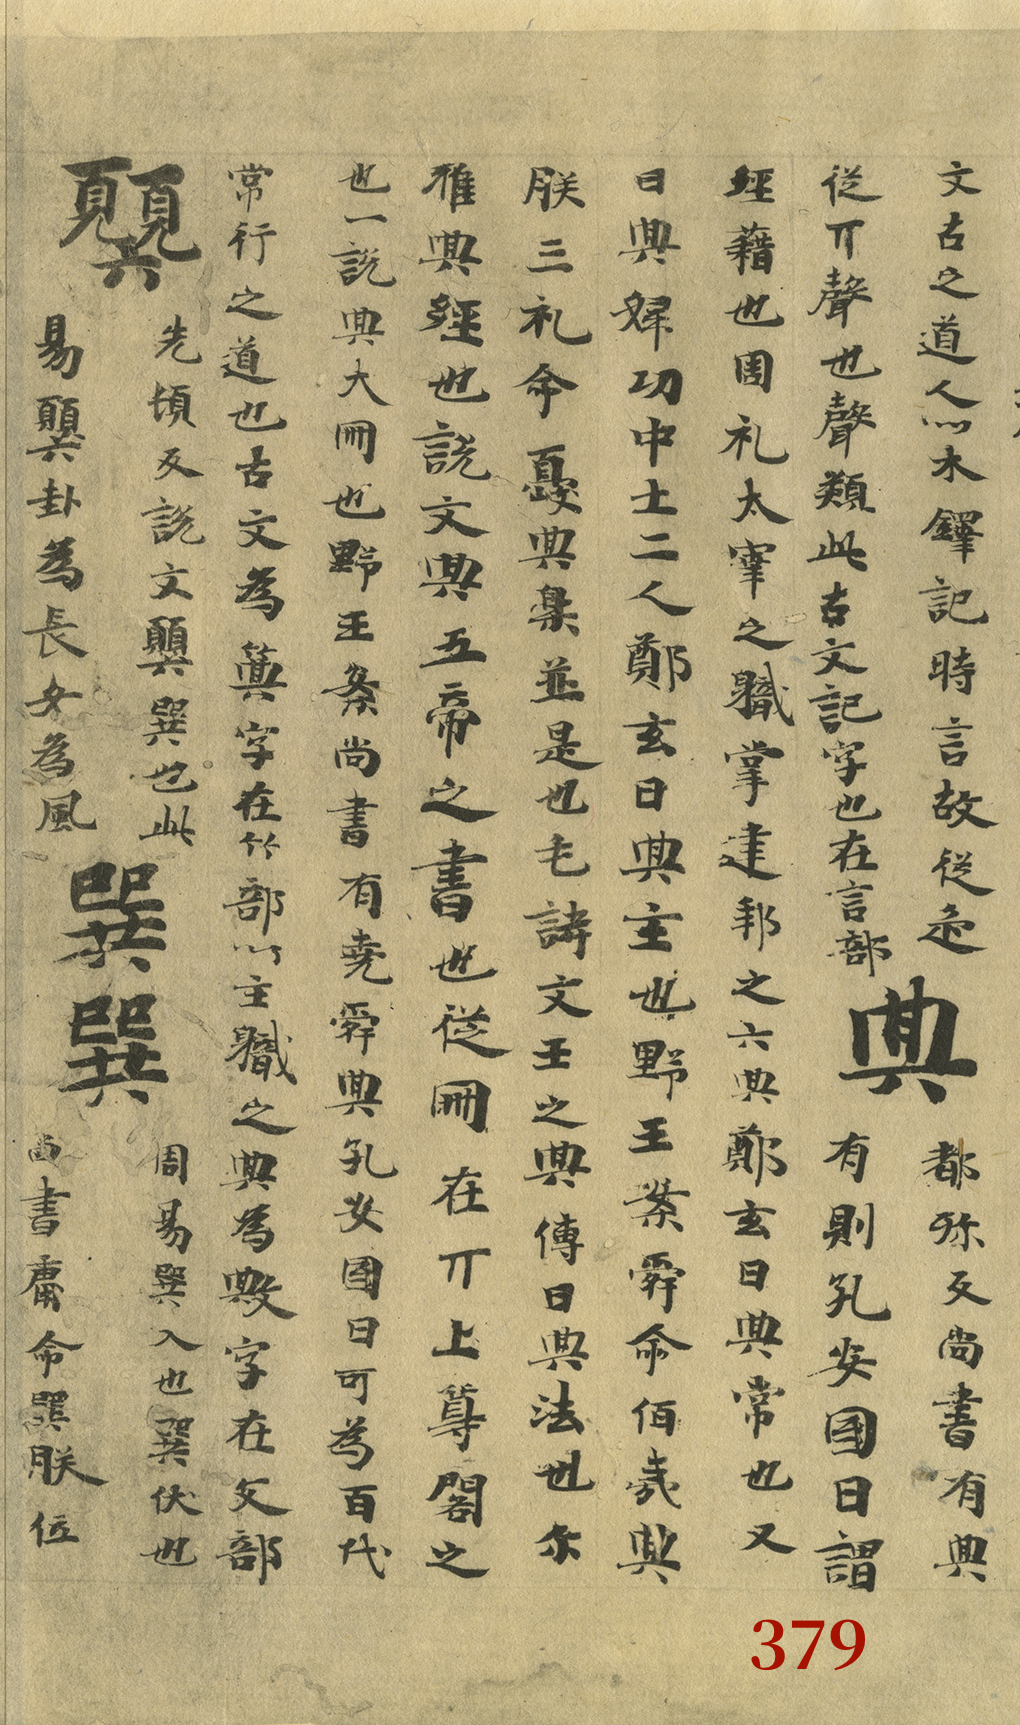 文古之道人以木鐸記時言故従辵
従丌聲也聲類此古文記字也在言部
典
都殄反尚書有典
有則孔安國曰謂
經藉也周礼太宰之職掌建邦之六典鄭玄曰典常也又
曰典婦功中士二人鄭玄曰典主也野王案舜命伯夷典
朕三礼命夔典樂並是也毛詩文王之典傳曰典法也尓
雅典經也說文典五帝之書也従冊在丌上尊閣之
也一說典大冊也野王案尚書有堯舜典孔安國曰可為百代
常行之道也古文為箕字在竹部以主職之典為敟字在攵部
顨
先頃反說文顨巽也此
易顨卦為長女為風
巽
巽
周易巽入也巽伏也
尚書庸命巽朕位
379